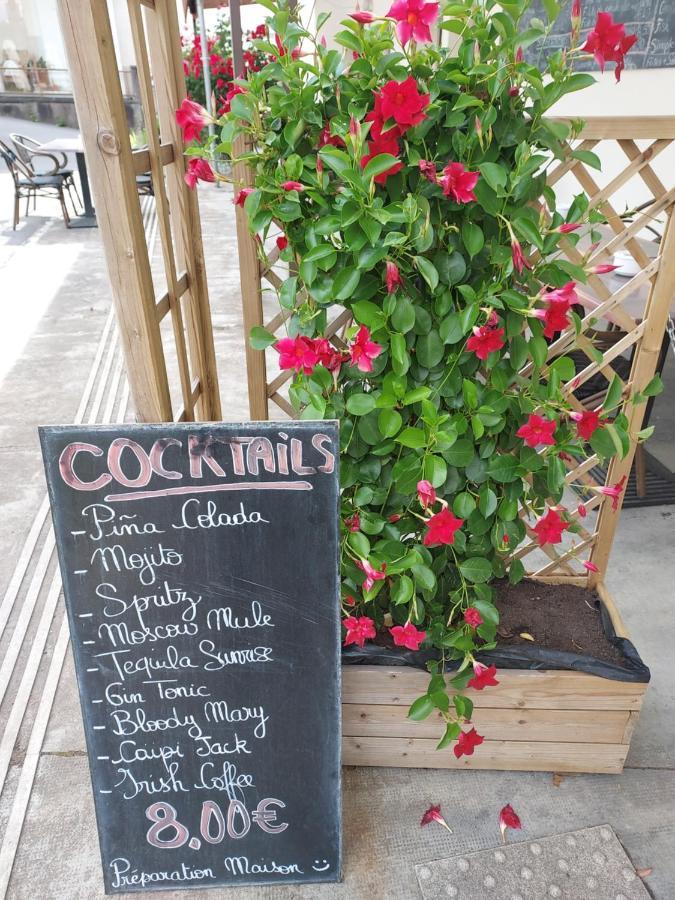 COCKTAILS
- Piña Colada
- Mojito
- Spritz
- Moscow Mule
- Tequila Sunrise
- Gin Tonic
- Bloody Mary
- Caïpi Jack
- Irish Coffee
8.00€
Préparation Maison :)